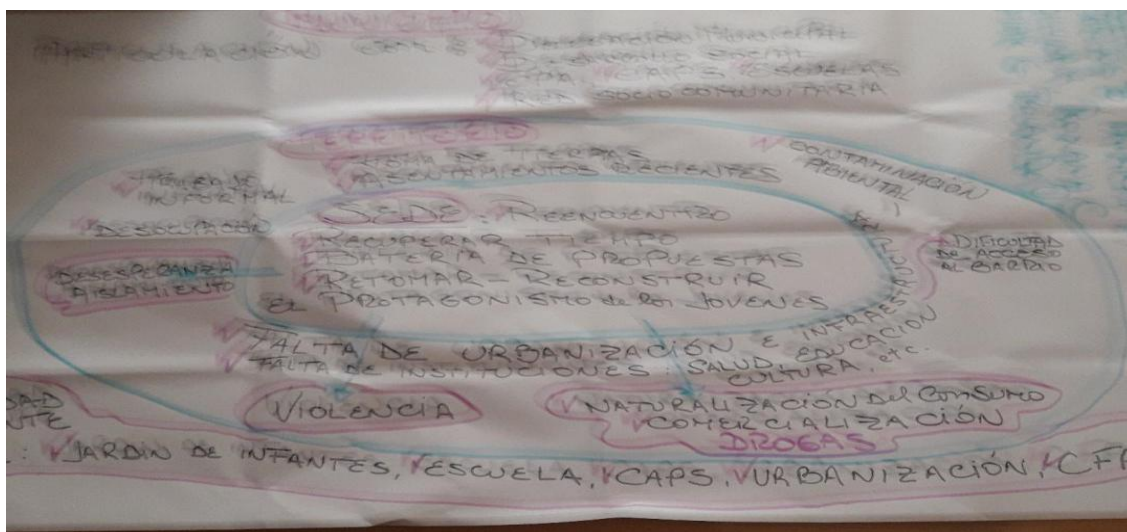 ARTICULACIÓN CON:
ESCUELAS
RED SOCIO COMUNITARIA
TERRITORIO
TOMA DE TIERRAS
ASENTAMIENTOS RECIENTES
CONTAMINACIÓN
AMBIENTAL
INFORMAL
DESOCUPACIÓN
DESESPERANZA
AISLAMIENTO
SEDE: REENCUENTRO
RECUPERAR TIEMPO
BATERIA DE PROPUESTAS
RETOMAR - RECONSTRUIR
EL PROTAGONISMO de los JOVENES
DIFICULTAD
DE ACCESO
AL BARRIO
FALTA DE URBANIZACIÓN E INFRAESTRUCTURA
FALTA DE INSTITUCIONES: SALUD, EDUCACIÓN
CULTURA, etc.
VIOLENCIA
NATURALIZACIÓN del CONSUMO
COMERCIALIZACIÓN
DROGAS
: JARDIN DE INFANTES, ESCUELA, CAPS, URBANIZACIÓN,